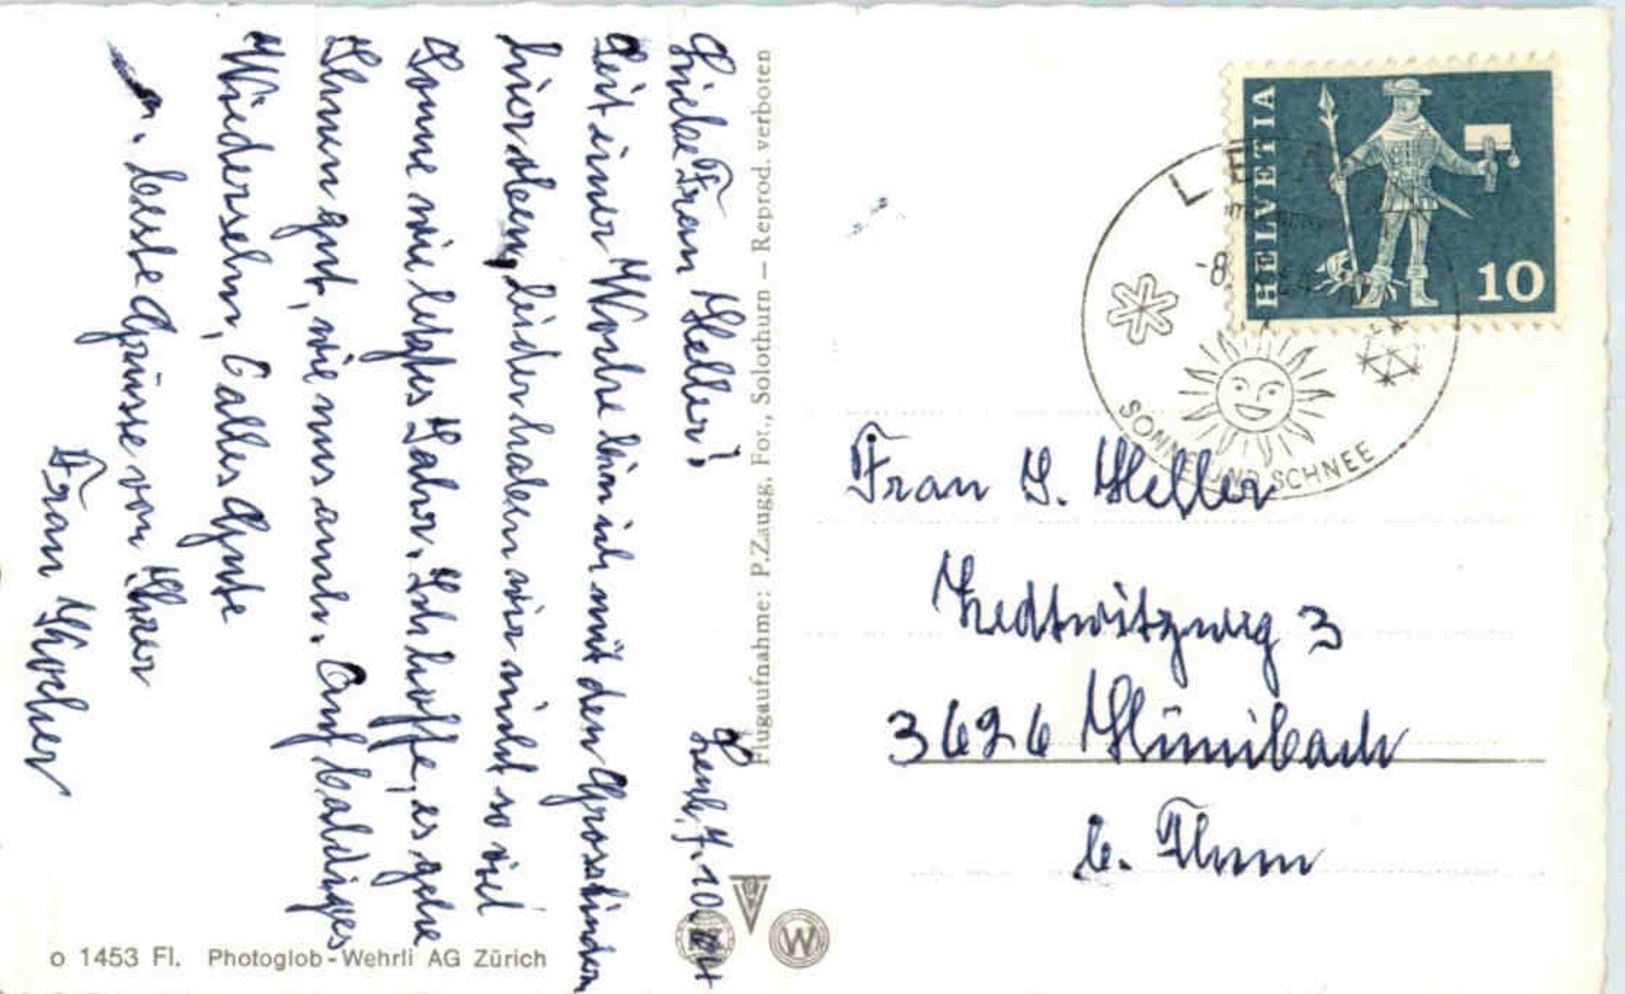 Lenk, 7.10.64
Liebe Frau Heller!
Seit einer Woche bin ich mit den Grosskindern
hier oben, leider haben wir nicht so viel
Sonne wie letztes Jahr. Ich hoffe, es gehe
Ihnen gut, wie uns auch. Auf baldiges
Wiedersehn, alles Gute
u. beste Grüsse von Ihrer
Frau Kocher
Flugaufnahme: P. Zaugg, Fot., Solothurn — Reprod. verboten
o 1453 Fl. Photoglob-Wehrli AG Zürich
W
HELVETIA
10
-8.
SONNE UND SCHNEE
Frau J. Heller
Zedtwitzweg 3
3626 Hünibach
b. Thun